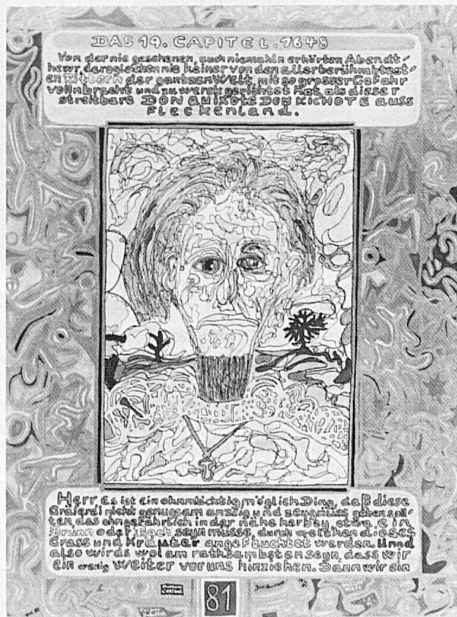 DAS 19. CAPITEL. 1648
Von der nie gesehenen, auch niemahln erhörten Abendt-
hewr, dergleichen nie keiner von den allerberühmbtest-
en Rittern der gantzen Welt, mit so grosser Gefahr
vollnbracht und zu werck gerichtet hat, als dieser
streitbare DON QUIXOTE DON KICHOTE auss
FLECKENLAND.
Herr, es ist ein ohnmüchtig möglich Ding, daß diese
nicht genugsam anzeig und zeugnuss geben soll-
ten, das ohngefährlich in der nähe herbey, etwa ein
Brunn oder Bach seyn müsse, durch welchen dieses
Grass und Kräuter angefeuchtet werden. Und
also wirds wol am rathsambsten seyn, dass wir
ein wenig weiter vor uns hinziehen. Dann wir ein
81